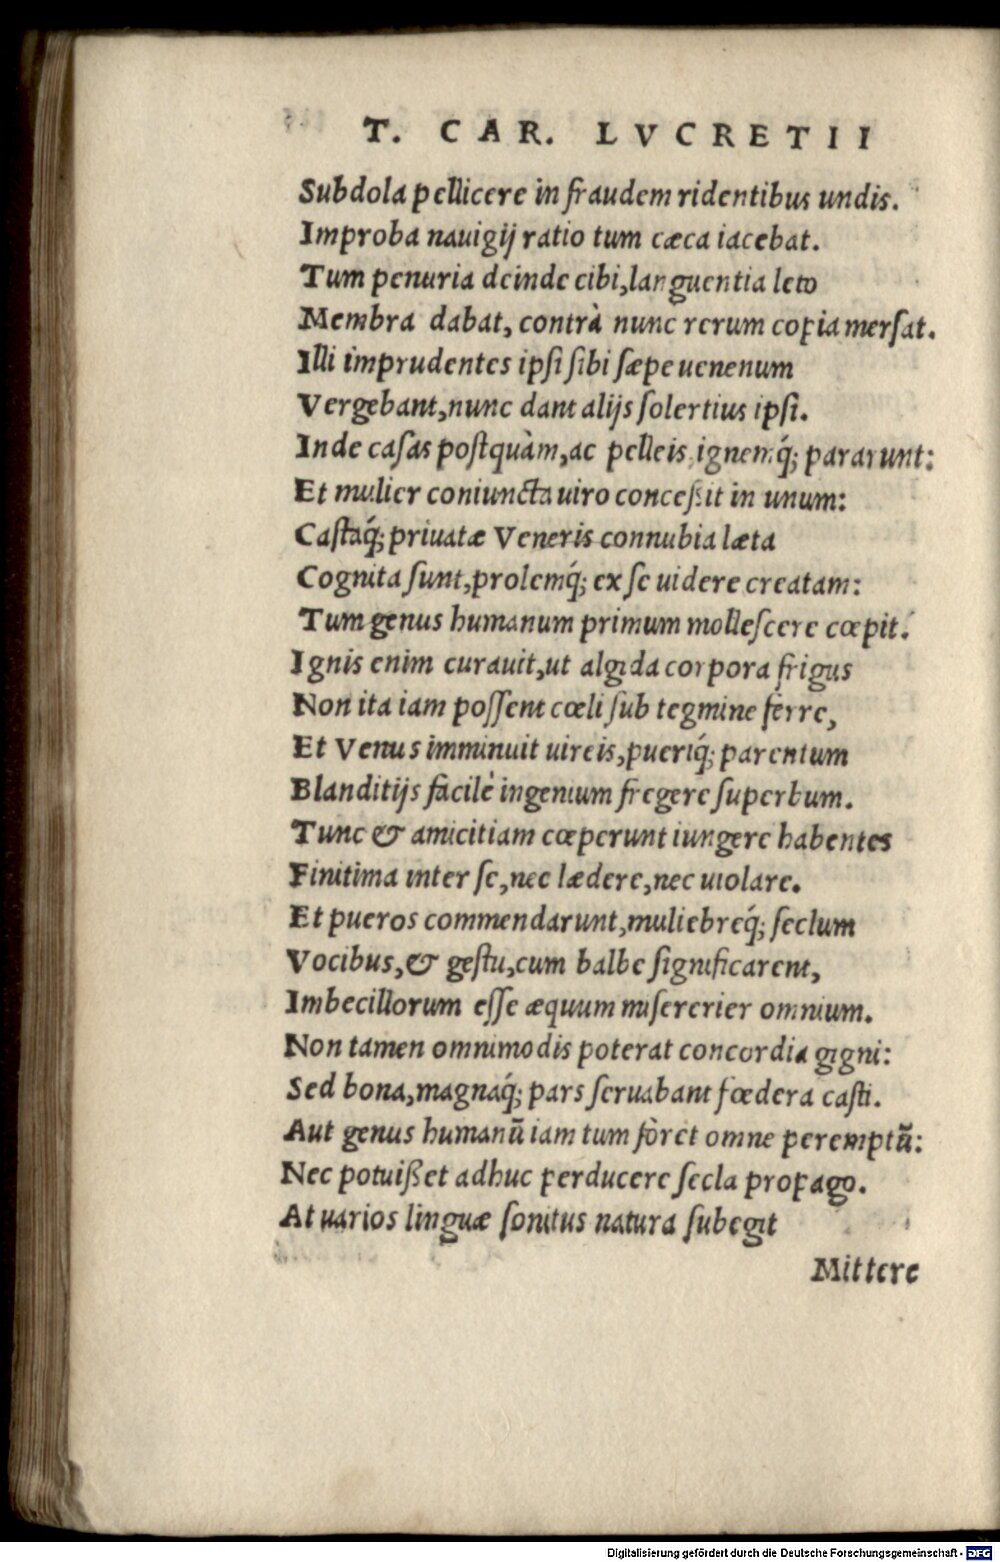 T. CAR. LVCRETII
Subdola pellicere in fraudem ridentibus undis.
Improba nauigij ratio tum cæca iacebat.
Tum penuria deinde cibi, languentia leto
Membra dabat, contrà nunc rerum copia mersat.
Illi imprudentes ipsi sibi sæpe uenenum
Vergebant, nunc dant alijs solertius ipsi.
Inde casas postquàm, ac pelleis, ignemq́; pararunt:
Et mulier coniuncta uiro conceßit in unum:
Castaq́; priuatæ Veneris connubia læta
Cognita sunt, prolemq́; ex se uidere creatam:
Tum genus humanum primum mollescere cœpit.
Ignis enim curauit, ut algida corpora frigus
Non ita iam possent cœli sub tegmine ferre,
Et Venus imminuit uireis, pueriq́; parentum
Blanditijs facilè ingenium fregere superbum.
Tunc & amicitiam cœperunt iungere habentes
Finitima inter se, nec lædere, nec uiolare.
Et pueros commendarunt, muliebreq́; seclum
Vocibus, & gestu, cum balbe significarent,
Imbecillorum esse æquum misererier omnium.
Non tamen omnimodis poterat concordia gigni:
Sed bona, magnaq́; pars seruabant fœdera casti.
Aut genus humanū iam tum foret omne peremptū:
Nec potuißet adhuc perducere secla propago.
At uarios linguæ sonitus natura subegit
Mittere
Digitalisierung gefördert durch die Deutsche Forschungsgemeinschaft - DFG